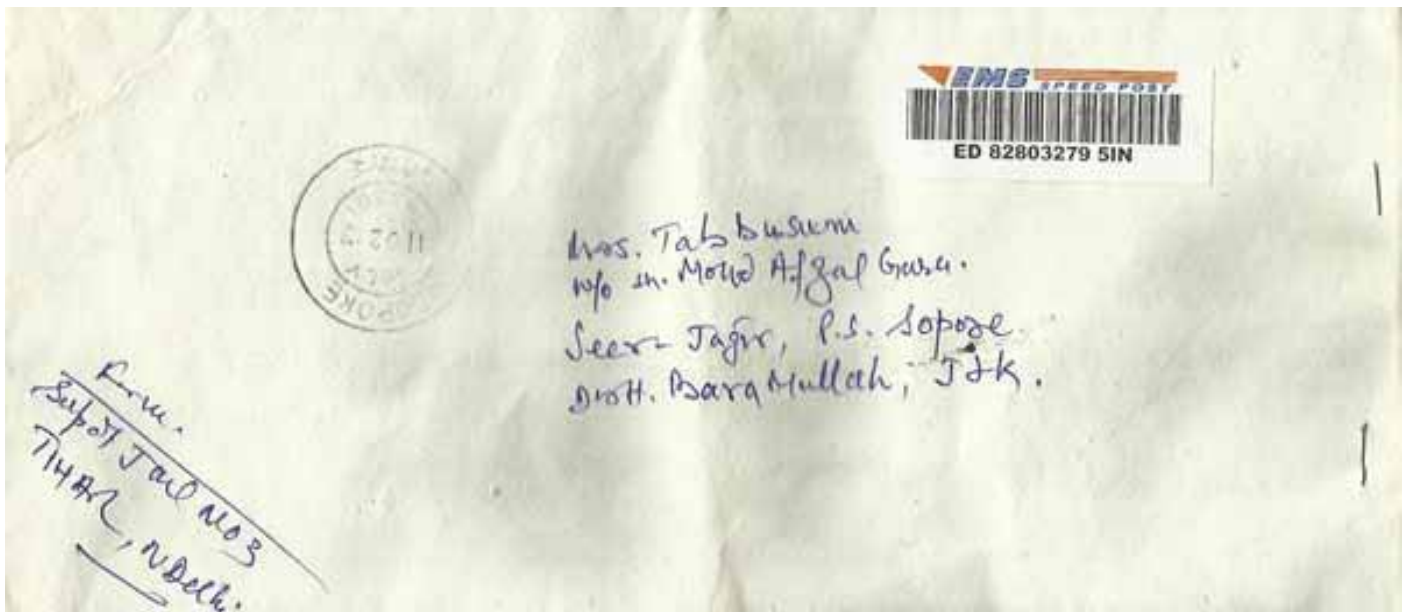 EMS SPEED POST
ED 82803279 5IN
Mrs. Tabbusum
w/o Sh. Mohd Afzal Guru.
Seer- Jagir, P.S. Sopore
Distt. BaraMullah, J&K.
From.
Supdt Jail No 3
TIHAR, N Delhi.
11 02